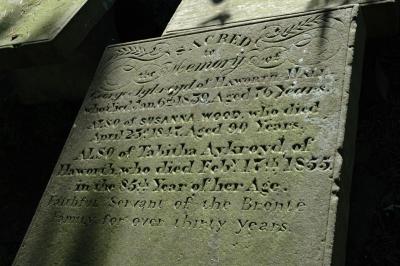 SACRED
to
the Memory of
George Aykroyd of Haworth Hall
who died Jany 6th 1839, Aged 76 Years.
ALSO of SUSANNA WOOD, who died
April 23d 1847, Aged 90 Years.
ALSO of Tabitha Aykroyd of
Haworth, who died Feby 17th 1855
in the 85th Year of her Age.
Faithful Servant of the Bronte
Family for over thirty years.